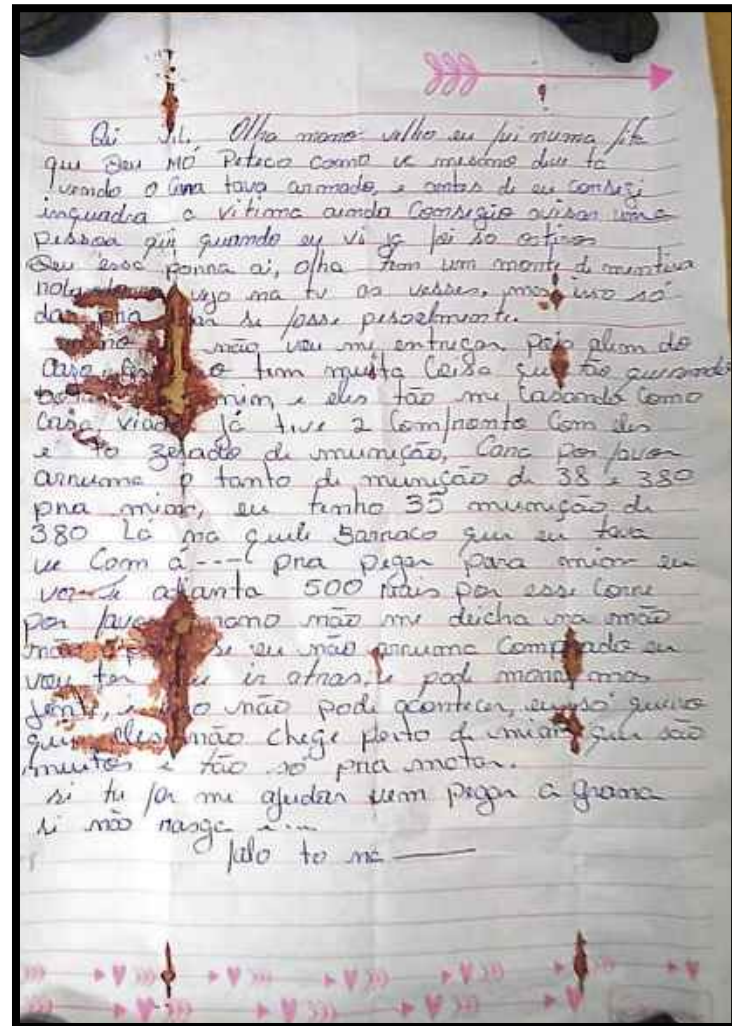 Oi J.L. Olha mano velho eu fui numa fita
que Deu MÓ Peteco como vc mesmo deve tá
vendo o Cara tava armado, e antes de eu Consegi
inguadra a vitima ainda Consegio avisar uma
pessoa qui quando eu vi já foi so ostiros
Deu essa porra ai, olha tem um monte di mentira
vejo na tv as vesses, mas isso só
dar pra si fosse pesoalmente.
não vou mi entregar, pois alem do
tem muita Coisa que tão querendo
mim, e eles tão me Casando Como
Casa, viado já tive 2 Comfronto Com eles
e to zerado di munição, Cara por favor
arruma o tanto di munição di 38 e 380
pra mim, eu tenho 35 munição di
380 Lá na quele Barraco qui eu tava
ve Com á ---- pra pegar para mim eu
adianta 500 reais por esse Corre
por favor mano não me deicha na mão
não se eu não arruma Comprado eu
vou ter ir atras, e pode morre mas
jente, i não pode acontecer, eu só queiro
que eles não chege perto di mim que são
muitos e tão só pra matar.
si tu for me ajudar vem pegar a grana
si não rasga
falo to na ———